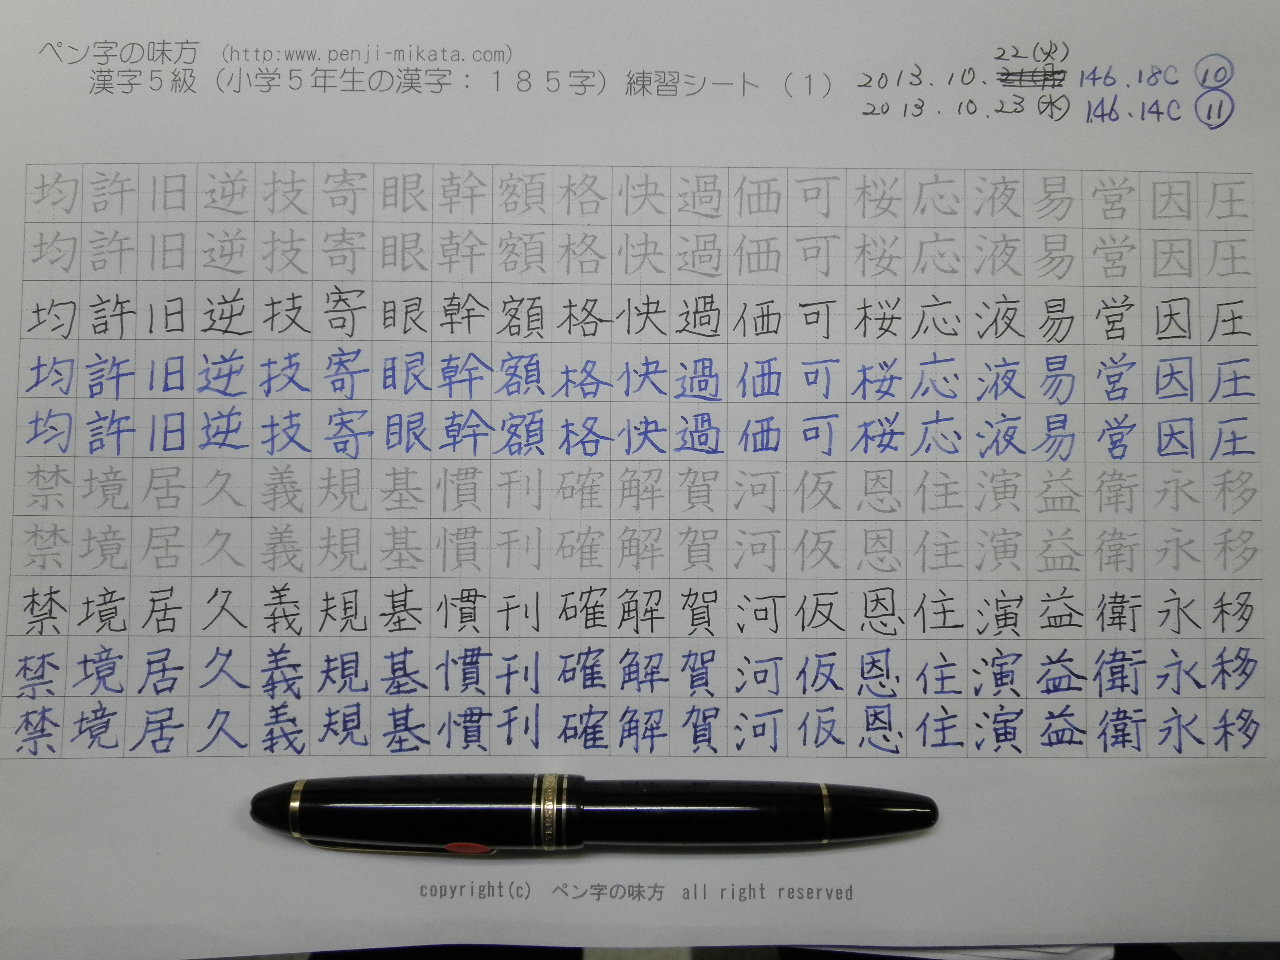 ペン字の味方 (http:www.penji-mikata.com)
漢字5級(小学5年生の漢字:185字)練習シート(1)
22(火)
2013.10. 146.18C ⑩
2013.10.23(水) 146.14C ⑪
均許旧逆技寄眼幹額格快過価可桜応液易営因圧
均許旧逆技寄眼幹額格快過価可桜応液易営因圧
均許旧逆技寄眼幹額格快過価可桜応液易営因圧
均許旧逆技寄眼幹額格快過価可桜応液易営因圧
均許旧逆技寄眼幹額格快過価可桜応液易営因圧
禁境居久義規基慣刊確解賀河仮恩往演益衛永移
禁境居久義規基慣刊確解賀河仮恩往演益衛永移
禁境居久義規基慣刊確解賀河仮恩往演益衛永移
禁境居久義規基慣刊確解賀河仮恩往演益衛永移
禁境居久義規基慣刊確解賀河仮恩往演益衛永移
copyright(c) ペン字の味方 all right reserved